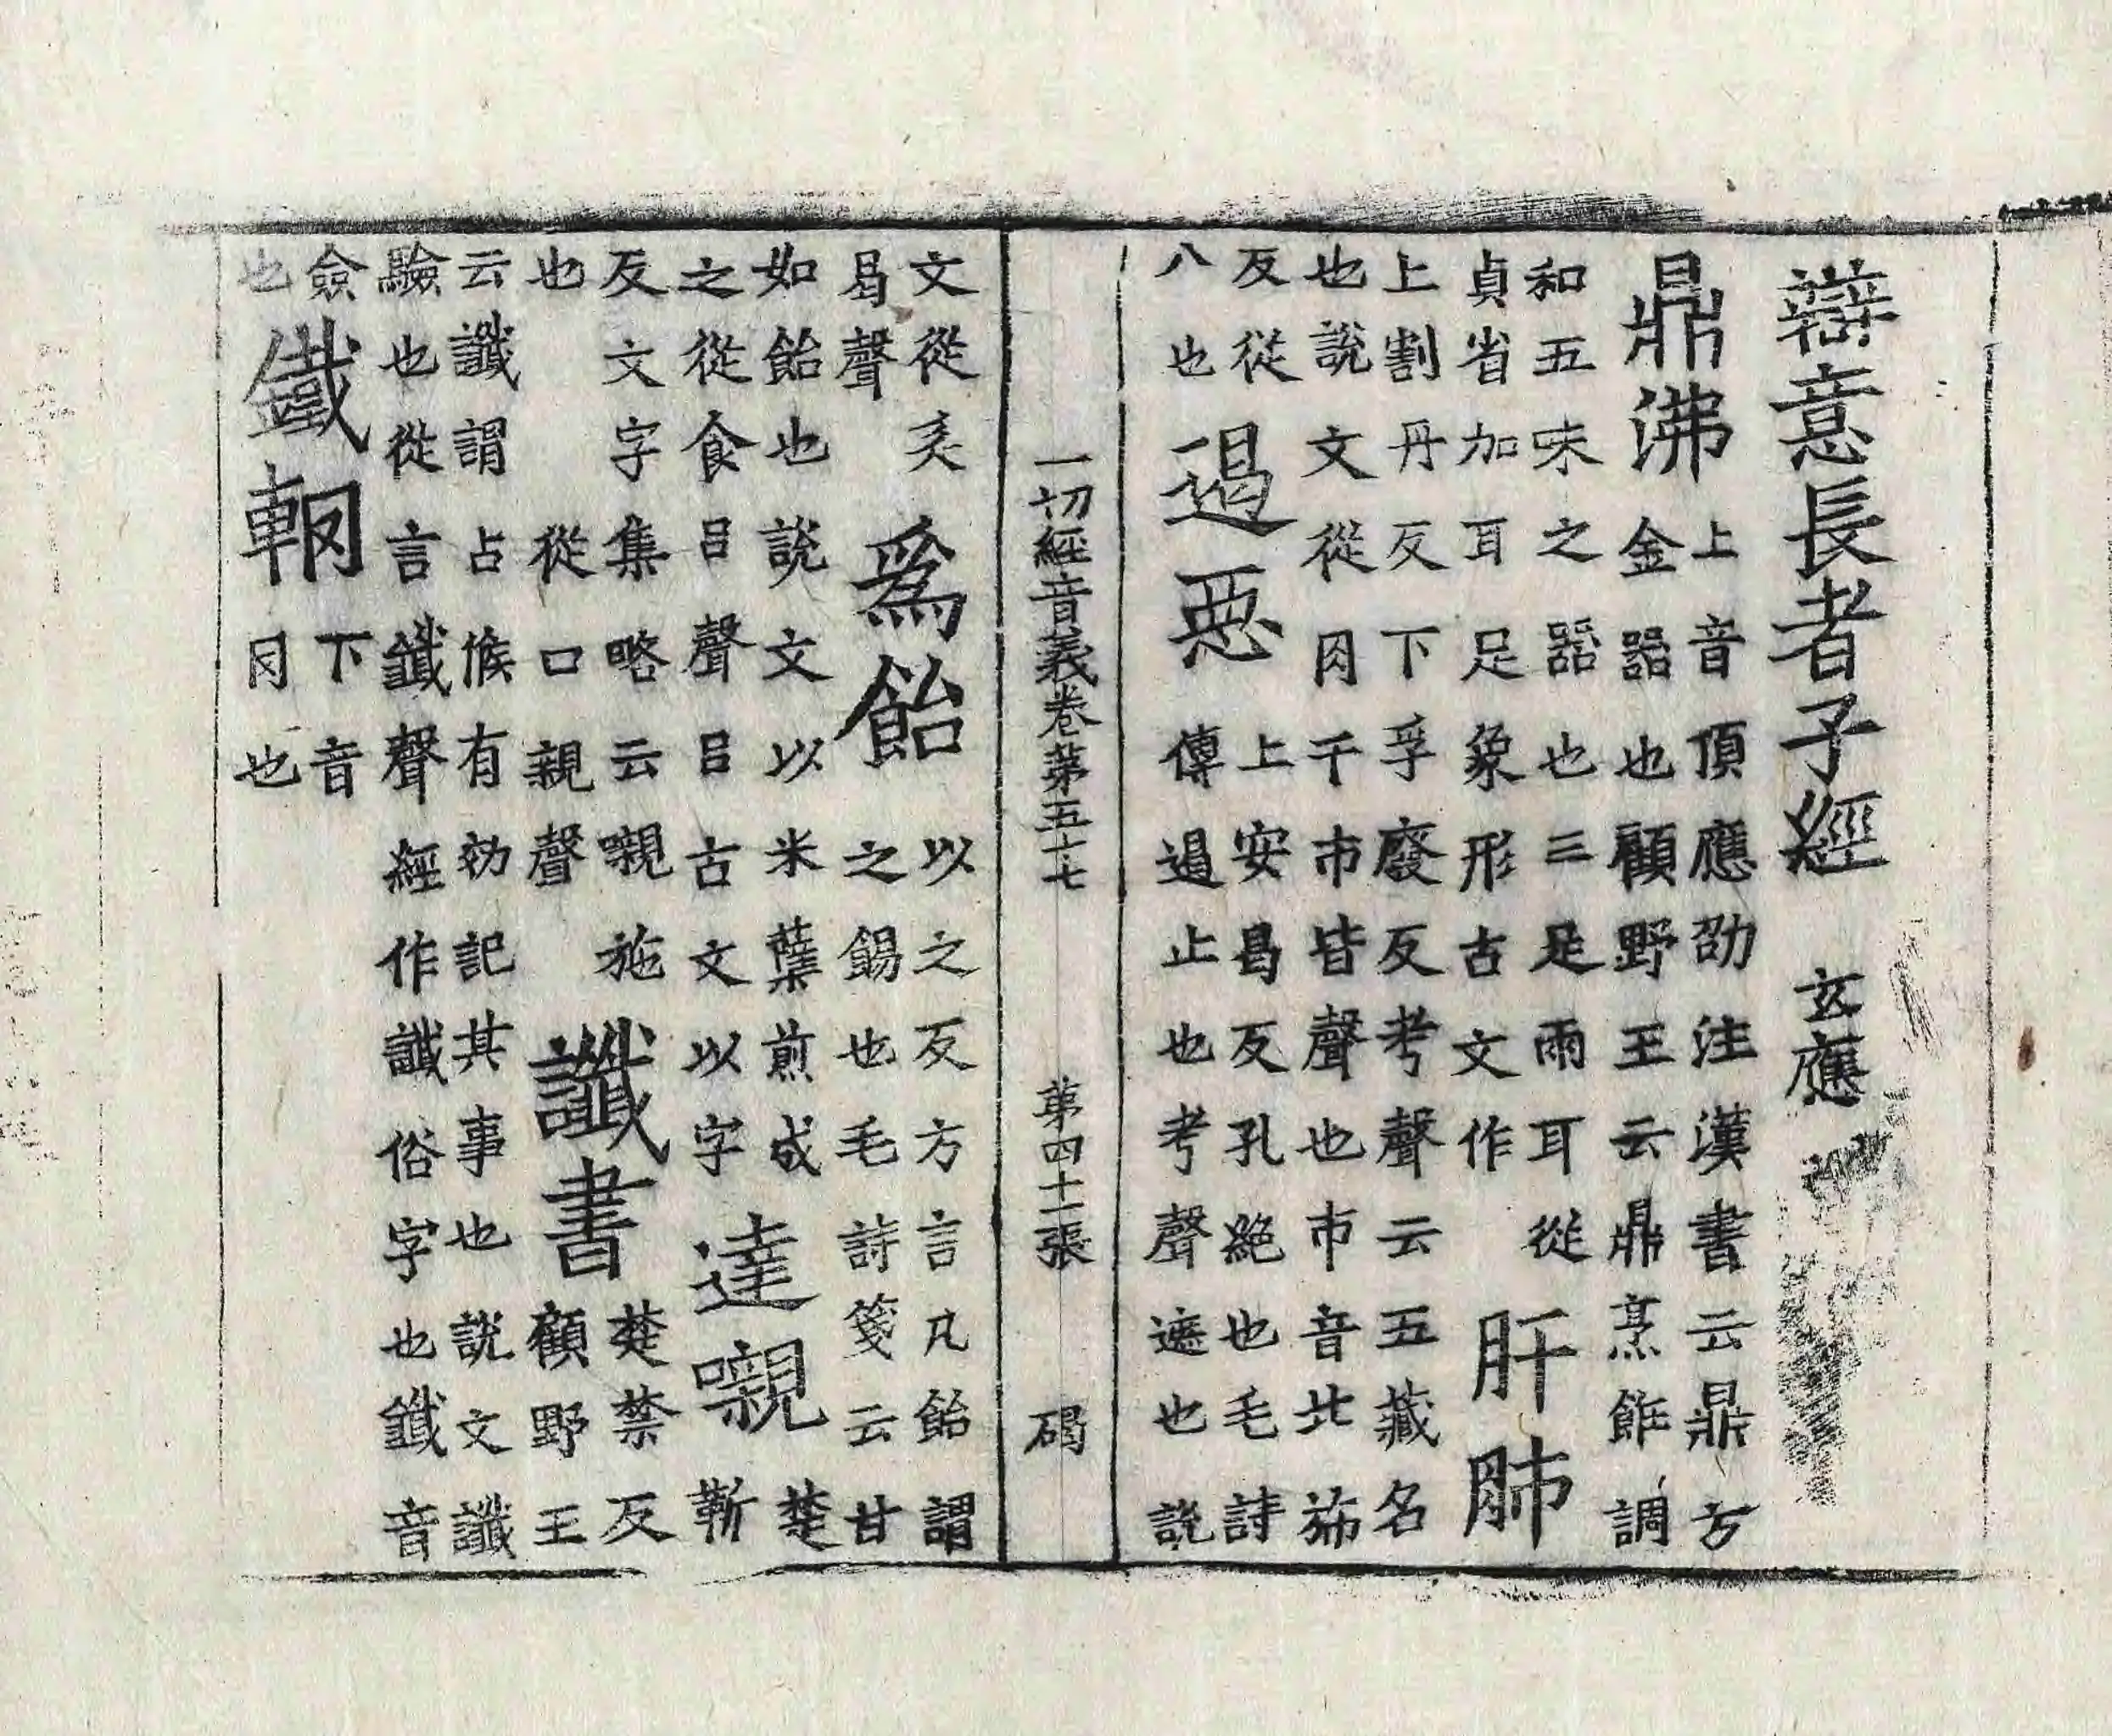 辯意長者子經　玄應
鼎沸上音頂應劭注漢書云鼎方
金器也顧野王云鼎烹餁調
和五味之器也三足兩耳從
貞省加耳足象形古文作　肝肺
上割丹反下孚廢反考聲云五藏名
也說文從肉干巿皆聲也巿音北㳍
反從
八也遏惡上安曷反孔絶也毛詩
傳遏止也考聲遮也說
一切經音義卷第五十七　第四十一張　碣
文從㱾
曷聲爲飴以之反方言凡飴謂
之餳也毛詩箋云甘
如飴也說文以米櫱煎成
之從食㠯聲㠯古文以字達嚫楚
靳
反文字集略云嚫施
也　從口親聲讖書楚禁反
顧野王
云讖謂占候有効記其事也說文讖
驗也從言韱聲經作讖俗字也韱音
僉
也鐵䡅下音
冈也